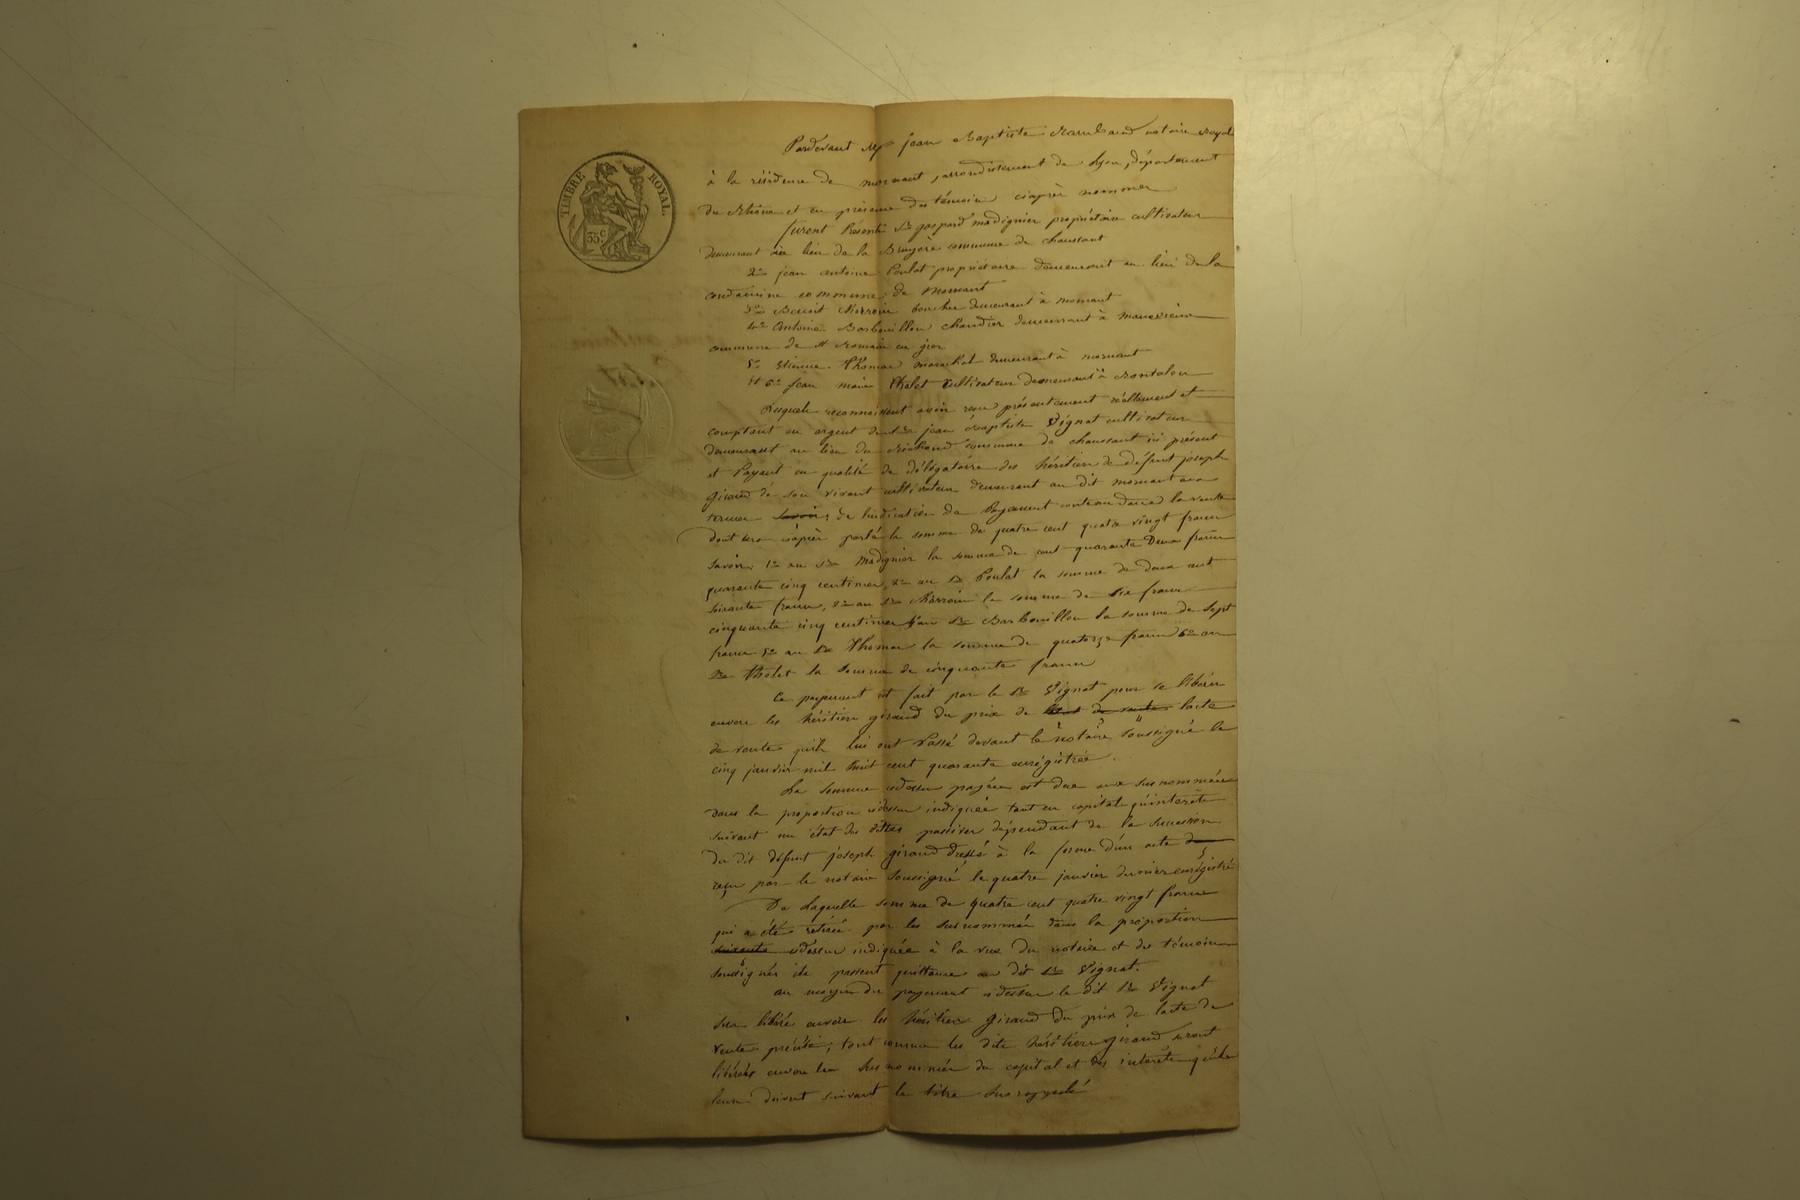 TIMBRE ROYAL.
35 c.
Pardevant Me jean Baptiste Rambaud notaire Royal
à la résidence de mornant, arrondissement de Lyon, département
du Rhône et en présence des témoins ciaprès nommés
furent Présents 1er Sr gaspard madignier propriétaire cultivateur
demeurant au lieu de la Bruyère commune de chaussant
2me jean antoine Poulat propriétaire demeurant au lieu de la
condamine commune de Mornant
3me Benoit boucher demeurant à mornant
4me Antoine Barbouillon demeurant à
commune de st Romain en gier
5me Etienne Thomas marechal demeurant à mornant
et 6me jean marie Thelet Cultivateur demeurant à Rontalon
Lesquels reconnaissent avoir reçu présentement réellement et
comptant en argent du Sr jean Baptiste Vignat cultivateur
demeurant au lieu du commune de chaussant ici présent
et Payant en qualité de délégataire des héritiers de défunt joseph
Giraud de son vivant cultivateur demeurant au dit mornant aux
termes de lindication de Payement contenu dans la vente
dont sera ciaprès parlé la somme de quatre cent quatre vingt francs
Savoir: 1er au Sr Madignier la somme de cent quarante Deux francs
quarante cinq centimes, 2me au Sr Poulat la somme de deux cent
soixante francs, 3me au Sr la somme de six francs
cinquante cinq centimes 4me au Sr Barbouillon la somme de sept
francs 5me au Sr Thomas la somme de quatorze francs 6me au
Sr Thelet la somme de cinquante francs
Ce payement est fait par le Sr Vignat pour se libérer
envers les héritiers giraud du prix de lacte
de vente quils lui ont Passé devant le notaire soussigné le
cinq janvier mil huit cent quarante enrégistrée.
La somme cidessus payée est due aux susnommées
dans la proportion cidessus indiquée tant en capital quinterêts
suivant un état des dettes passives dépendant de la succession
du dit défunt joseph giraud dressé à la forme dun acte
reçu par le notaire soussigné le quatre janvier dernier enrégistré
De Laquelle somme de quatre cent quatre vingt francs
qui a été retirée par les susnommés dans la proportion
cidessus indiquée à la vue du notaire et des témoins
soussignés ils passent quittance au dit Sr Vignat.
au moyen du payement cidessus le dit Sr Vignat
sera libéré envers les héritiers Giraud du prix de lacte de
vente précité, tout comme les dits héritiers giraud seront
libérés envers les susnommés du capital et des interêts quils
leur doivent suivant le titre sus rappelé